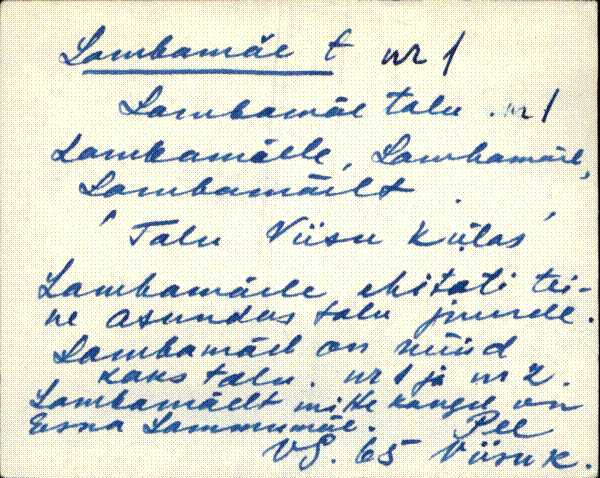 Lambamäe t nr 1
Lambamäe talu nr 1
Lambamäele, Lambamäel,
Lambamäelt
' Talu Viisu külas '
Lambamäele ehitati tei-
ne asundus talu juurde.
Lambamäel on nüüd
kaks talu. nr 1 ja nr 2.
Lambamäelt mitte kaugel on
Esna Lammumäe. Pee
VS. 65 Viisu k.